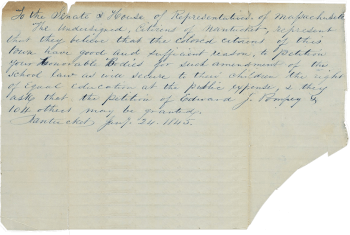 To the Senate & House of Representatives of Massachusetts
The Undersigned, Citizens of Nantucket, represent
that they believe that the Colored citizens of this
town have good and sufficient reason, to petition
your Honorable Bodies for such amendment of the
school law as will secure to their children the right
of equal education at the public expense, & they
ask that the petition of Edward J. Pompey &
104 others may be granted.
Nantucket, Jany. 24. 1845.